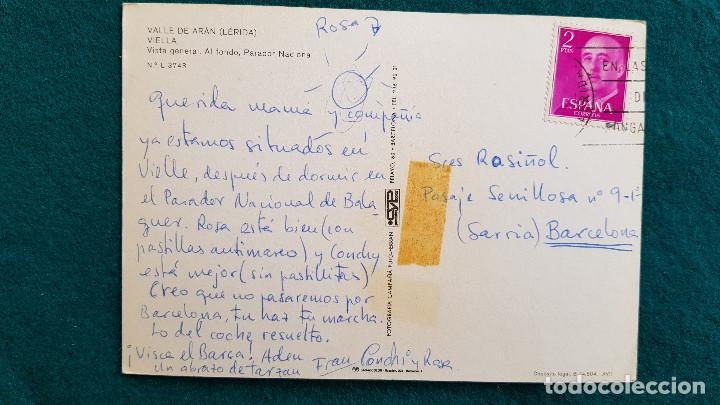 VALLE DE ARÁN (LÉRIDA)
VIELLA
Vista general. Al fondo, Parador Nacional
N.º L 3743
Rosa
Querida mamá y compañía
ya estamos situados en
Vielle, después de dormir en
el Parador Nacional de Bala
guer. Rosa está bien (con
pastillas antimareo) y Conchy
está mejor (sin pastillitas)
Creo que no pasaremos por
Barcelona, tu haz tu marcha.
Lo del coche resuelto.
¡Visca el Barça! Adeu
un abrazo de tarzan Fran Conchi y Rosa
FOTOGRAFIA CAMPAÑÁ PUIG-FERRAN
PELAYO, 62 - BARCELONA
2
PTAS
ESPAÑA
CORREOS
EN LAS
DI
GANGA
Sres Rasiñol.
Pasaje Senillosa nº 9-1º
(Sarria) Barcelona
Depósito legal B.
todocoleccion